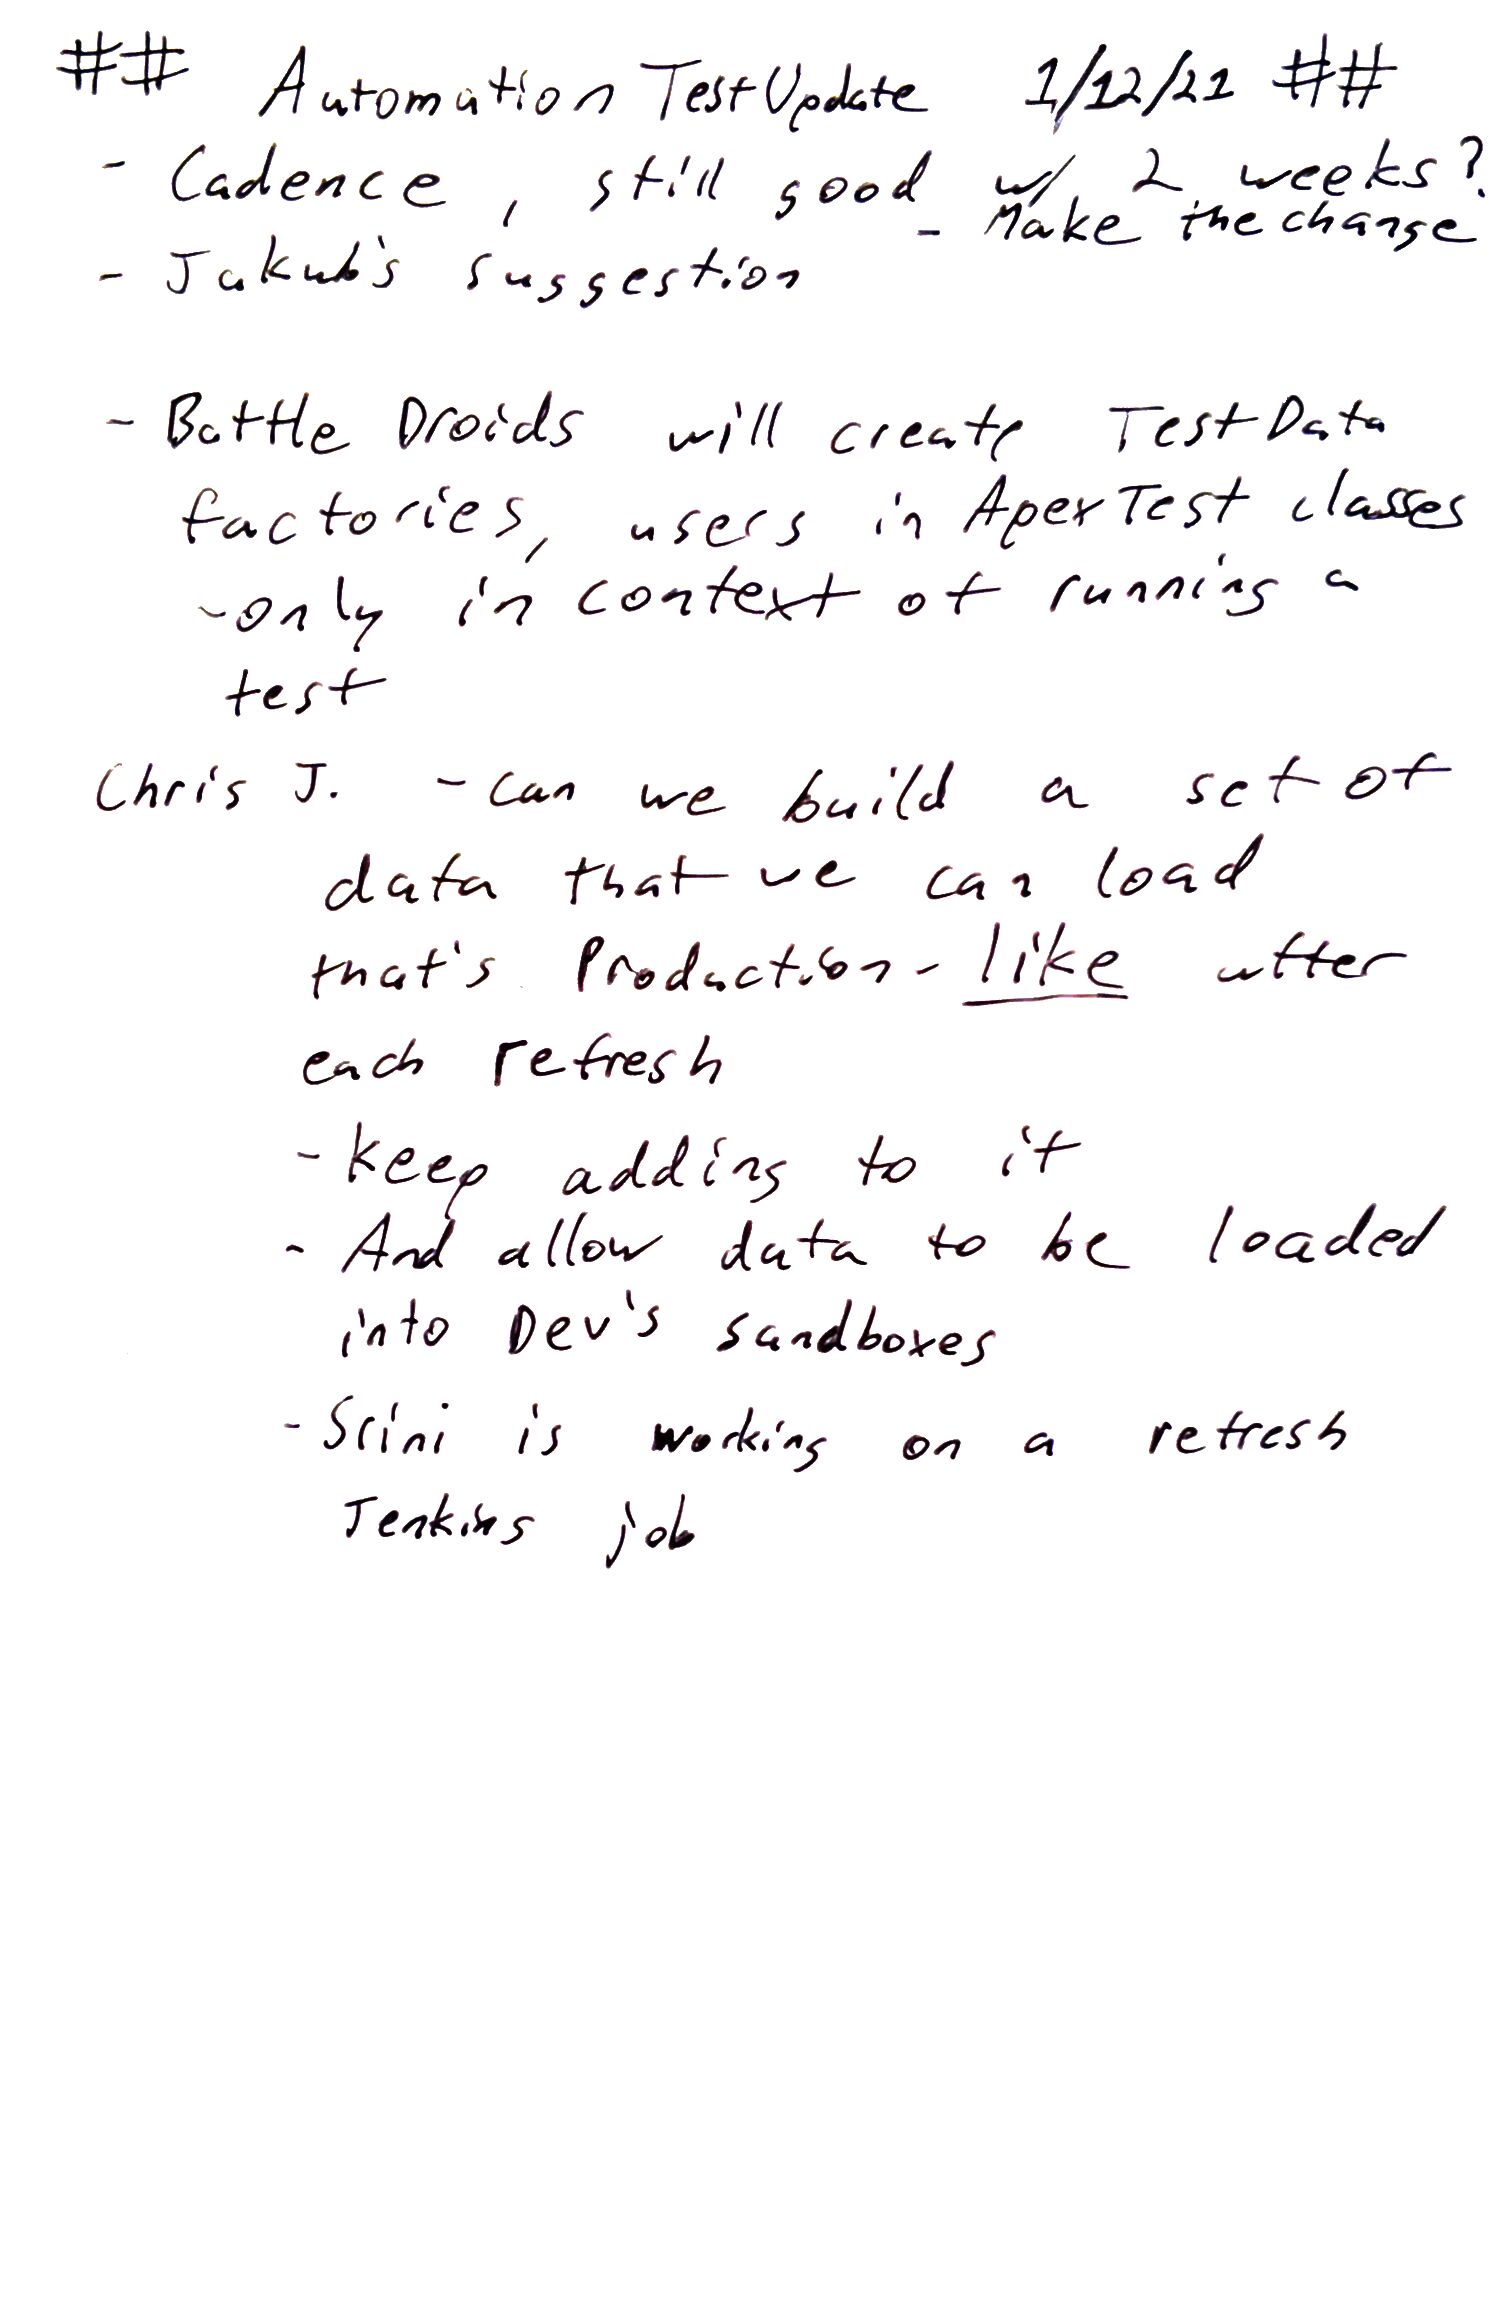 ## Automation Test Update 1/12/21 ##
- Cadence, still good w/ 2 weeks?
- Make the change
- Jakub's suggestion
- Battle Droids will create Test Data
factories, users in Apex Test classes
- only in context of running a
test
Chris J. - can we build a set of
data that we can load
that's Production-like after
each refresh
- keep adding to it
- And allow data to be loaded
into Dev's sandboxes
- Srini is working on a refresh
Jenkins job